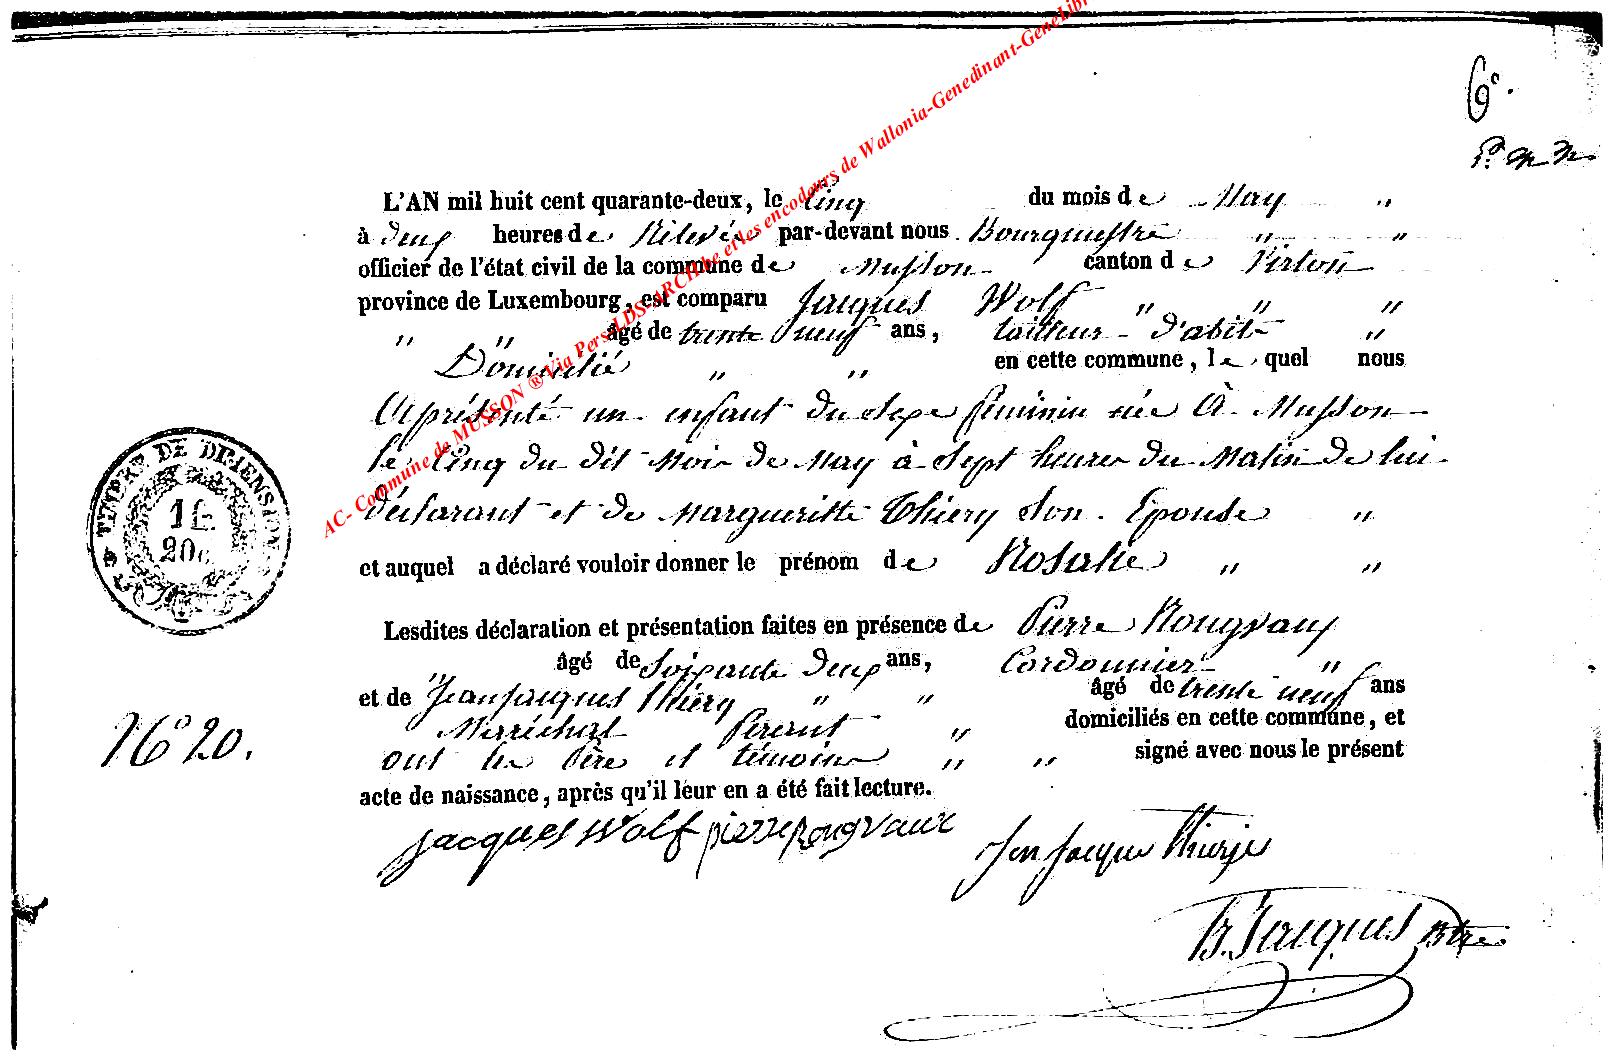 6e.
AC- Commune de MUSSON ® Via Pers-LDS-ARCH.be et les encodeurs de Wallonia-Genedinant-GeneLibr
L'AN mil huit cent quarante-deux, le Cinq du mois de May "
à deux heures de Rélevé par-devant nous Bourgmestre " "
officier de l'état civil de la commune de Musson canton de Virton
province de Luxembourg, est comparu Jacques Wolf " " "
" " âgé de trente neuf ans, tailleur d'abit "
Domicilié " " en cette commune, le quel nous
A présenté un enfant du sexe féminin née À Musson
le Cinq du dit Mois de May à Sept heures du Matin de lui
déclarant et de Margueritte Thiery Son Epouse "
et auquel a déclaré vouloir donner le prénom de Rosalie " "
TIMBRE DE DIMENSION
1 fr.
20c
Lesdites déclaration et présentation faites en présence de Pierre Rougvaux
" âgé de Soixante deux ans, Cordonnier "
et de Jean Jacques Thiery " " âgé de trente neuf ans
Marréchal Ferent " domiciliés en cette commune, et
ont les Père et témoins " " signé avec nous le présent
No 20.
acte de naissance, après qu'il leur en a été fait lecture.
Jacques Wolf pierre rougvaux
Jen Jacque Thierje
B. Jacques Btre.